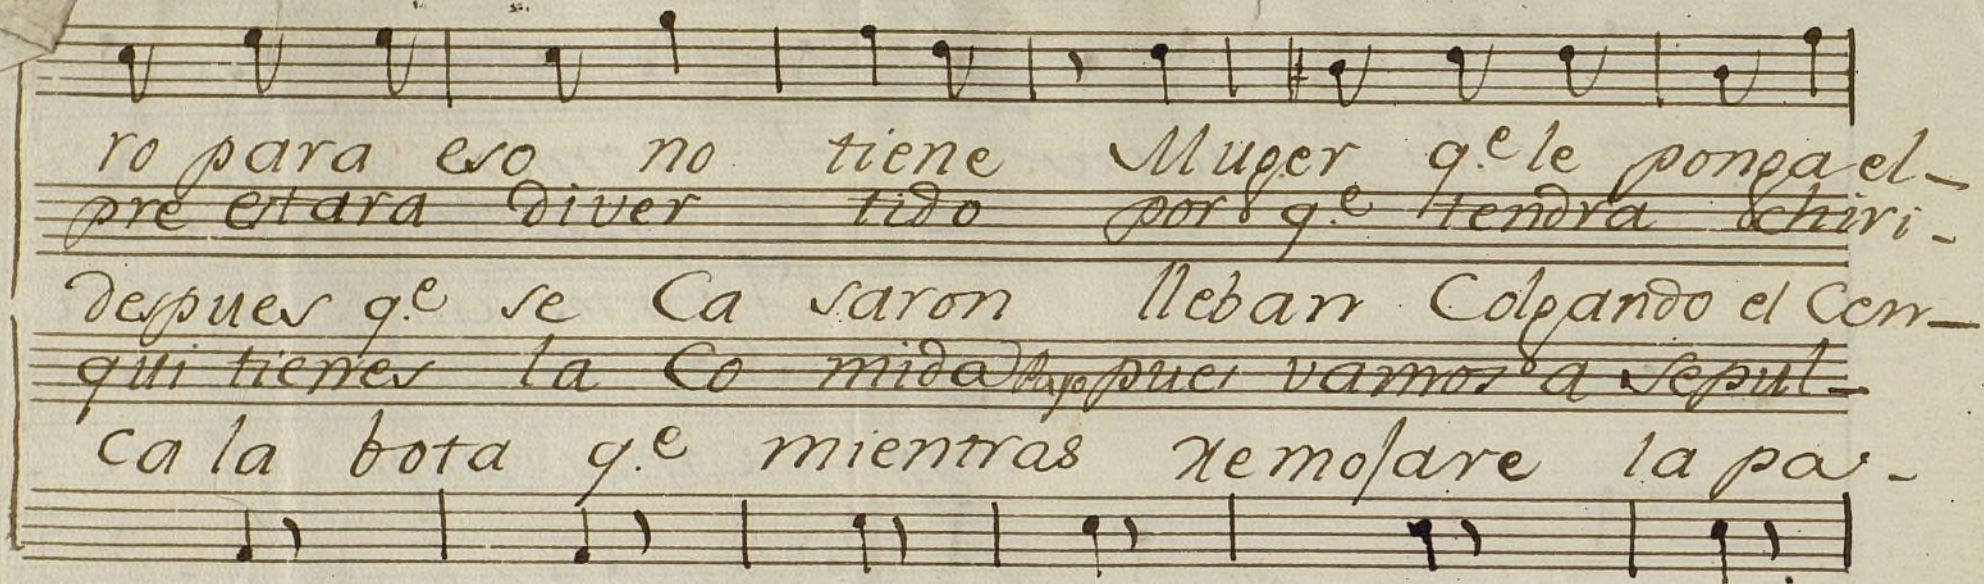 ro para eso no tiene Muger q.e le ponga el-
pre estara diver tido por q.e tendra chiri-
despues q.e se Ca saron lleban Colgando el Cen-
qui tienes la Co mida pues vamos a sepul-
ca la bota q.e mientras remojare la pa-